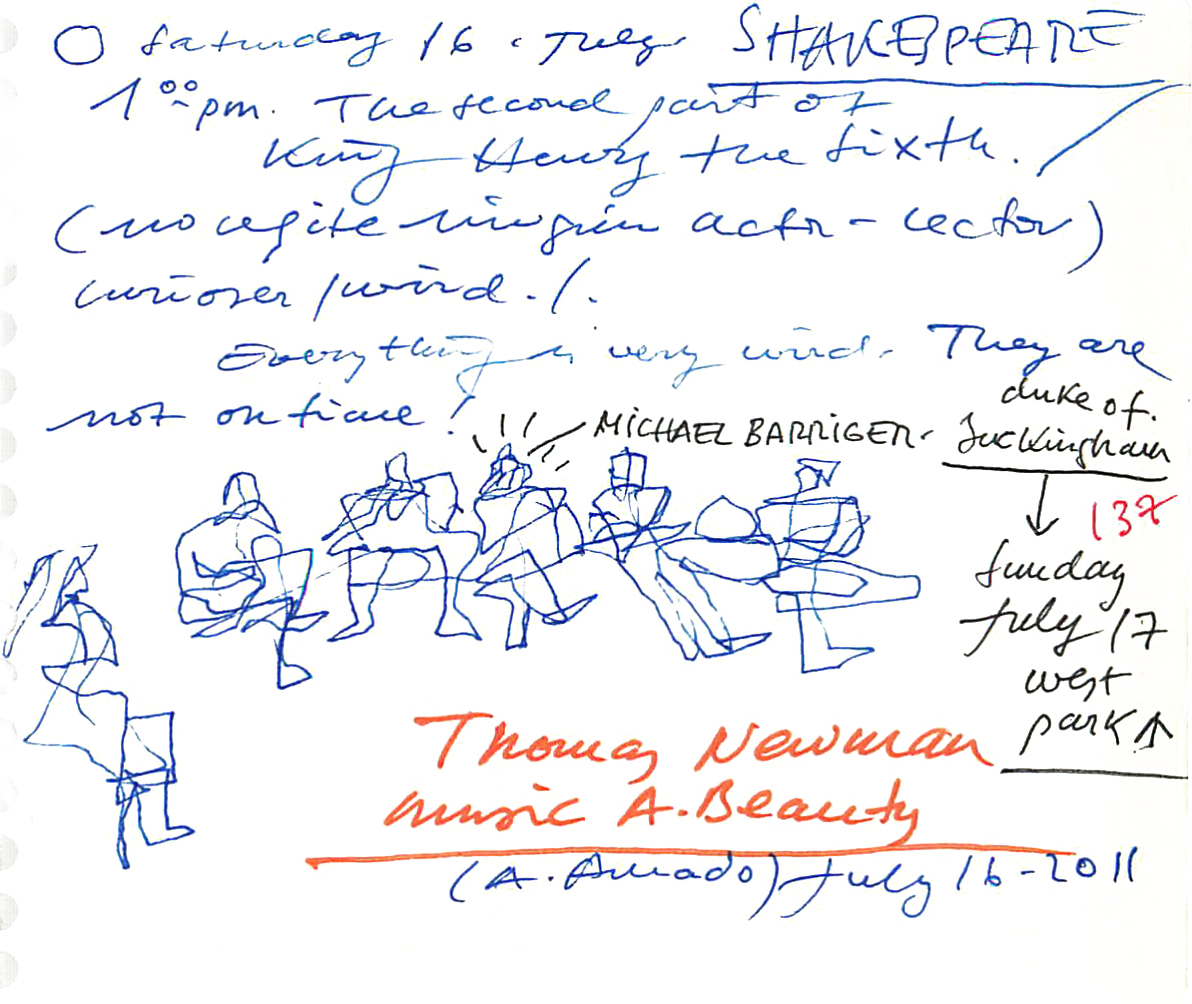 Saturday 16 - July. SHAKESPEARE
1:00 pm. The second part of
King Henry the sixth.
(no exite ningún actor - lector)
curioser / wird. /.
Everything is very wird. They are
not on time!
MICHAEL BARRIGER.
duke of.
Buckingham
137
Sunday
July 17
west
park
Thomas Newman
music A. Beauty
(A. Amado) July 16 - 2011